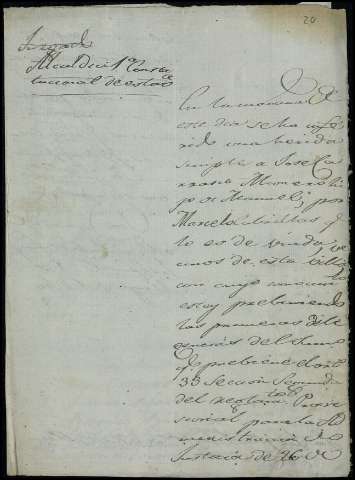 20
Juzgado
Alcaldia 1ª Consti
tucional de esta
En la mañana de
este dia se ha infe
rido una herida
simple a Jose Ca
rrasco Moreno hi
jo de Manuel, por
Marcela q.e
lo es de viuda, ve
cinos de esta villa
con cuyo
estoy prebiniendo
las primeras dili
gencias del Sumo.
q.e prebiene el art.
35 Seccion Segunda
del reglam.to Provi
sional para la Ad
ministracion de
Justicia de 26 de